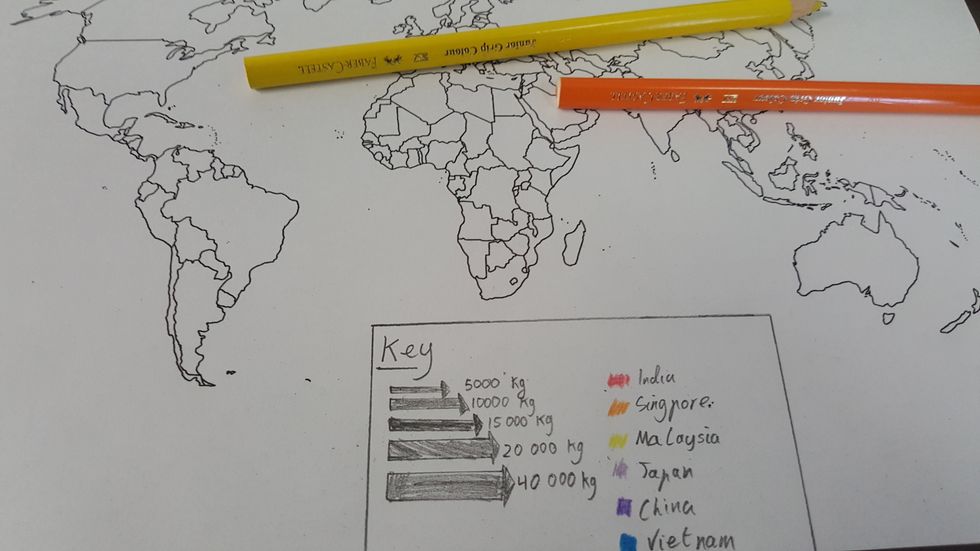 FABER-CASTELL Junior Grip Colour
FABER-CASTELL Junior Grip Colour
Key
5000 kg
10000 kg
15 000 kg
20 000 kg
40 000 kg
India
Singpore
Malaysia
Japan
China
Vietnam